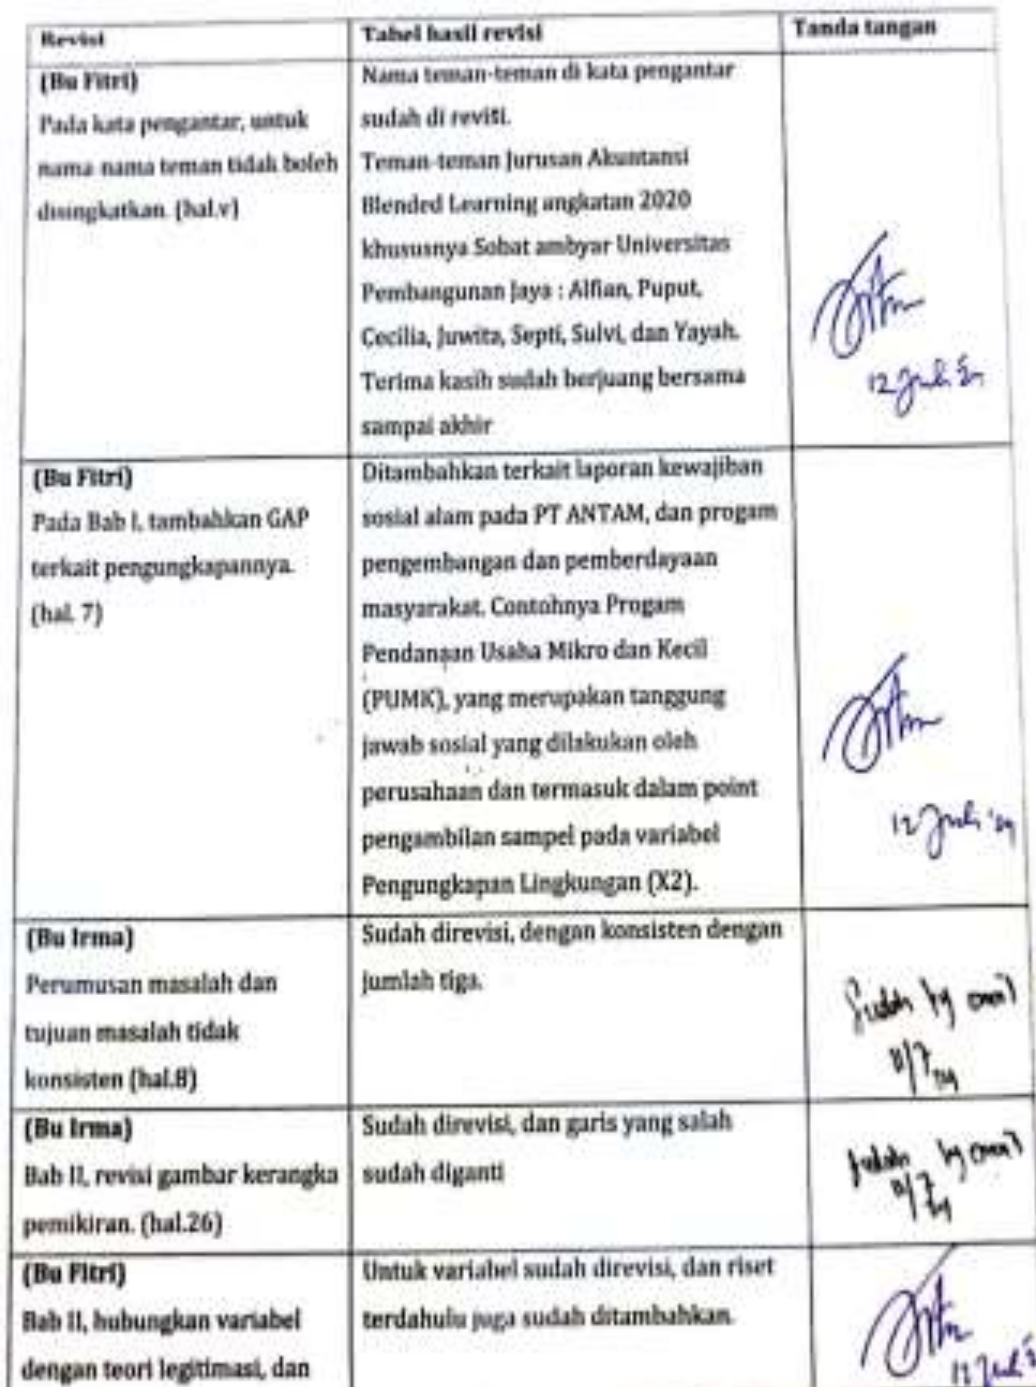 Revisi
Tabel hasil revisi
Tanda tangan
(Bu Fitri)
Pada kata pengantar, untuk
nama nama teman tidak boleh
disingkatkan. (hal.v)
Nama teman-teman di kata pengantar
sudah di reviti.
Teman-teman Jurusan Akuntansi
Blended Learning angkatan 2020
khususnya Sobat ambyar Universitas
Pembangunan Jaya : Alfian, Puput,
Cecilia, Juwita, Septi, Sulvi, dan Yayah.
Terima kasih sudah berjuang bersama
sampai akhir
12 Juli
(Bu Fitri)
Pada Bab I, tambahkan GAP
terkait pengungkapannya.
(hal. 7)
Ditambahkan terkait laporan kewajiban
sosial alam pada PT ANTAM, dan progam
pengembangan dan pemberdayaan
masyarakat. Contohnya Progam
Pendanaan Usaha Mikro dan Kecil
(PUMK), yang merupakan tanggung
jawab sosial yang dilakukan oleh
perusahaan dan termasuk dalam point
pengambilan sampel pada variabel
Pengungkapan Lingkungan (X2).
12 Juli '24
(Bu Irma)
Perumusan masalah dan
tujuan masalah tidak
konsisten (hal.8)
Sudah direvisi, dengan konsisten dengan
jumlah tiga.
Sudah by
(Bu Irma)
Bab II, revisi gambar kerangka
pemikiran. (hal.26)
Sudah direvisi, dan garis yang salah
sudah diganti
Sudah by
(Bu Fitri)
Bab II, hubungkan variabel
dengan teori legitimasi, dan
Untuk variabel sudah direvisi, dan riset
terdahulu juga sudah ditambahkan.
12 Juli